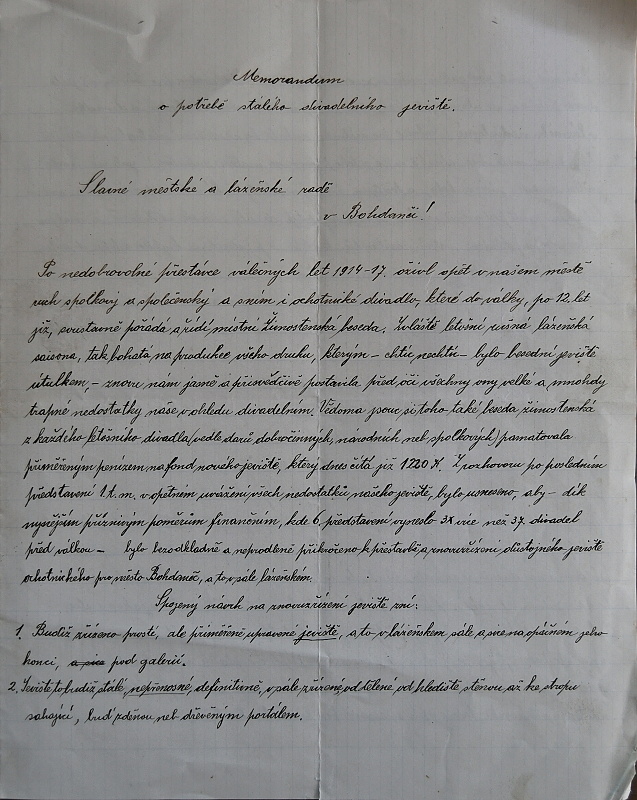 Memorandum
o potřebě stálého divadelního jeviště.
Slavné městské a lázeňské radě
v Bohdanči!
Po nedobrovolné přestávce válečných let 1914-17. oživl opět v našem městě
ruch spolkový a společenský a s ním i ochotnické divadlo, které do války, po 12. let
již, soustavně pořádá a řídí místní Živnostenská beseda. Zvláště letošní rušná lázeňská
saisona, tak bohatá na produkce všeho druhu, kterým – chtíc nechtíc – bylo besední jeviště
útulkem, – znovu nám jasně a přesvědčivě postavila před oči všechny ony velké a mnohdy
trapné nedostatky naše v ohledu divadelním. Vědoma jsouc si toho také beseda živnostenská
z každého letošního divadla (vedle darů dobročinných, národních neb spolkových) pamatovala
přiměřeným penízem na fond nového jeviště, který dnes čítá již 1220 K. Z rozhovoru po posledním
představení 1. t. m. v opětném uvážení všech nedostatků našeho jeviště, bylo usneseno, aby – dík
nynějším příznivým poměrům finančním, kde 6 představení vyneslo 3x více než 37. divadel
před válkou – bylo bezodkladně a neprodleně přikročeno k přestavbě a znovuzřízení důstojného jeviště
ochotnického pro město Bohdaneč, a to v sále lázeňském.
Spojený návrh na znovuzřízení jeviště zní:
1. Budiž zřízeno prosté, ale přiměřeně upravené jeviště, a to v lázeňském sále a sice na opačném jeho
konci, a sice pod galerií.
2. Jeviště to budiž stálé, nepřenosné, definitivně, v sále zřízené, oddělené od hlediště stěnou až ke stropu
sahající, buď zděnou neb dřevěným portálem.